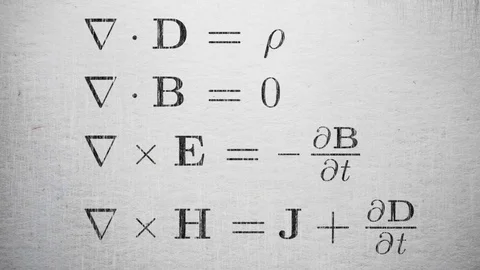 ∇ · D = ρ
∇ · B = 0
∇ × E = −∂B/∂t
∇ × H = J + ∂D/∂t